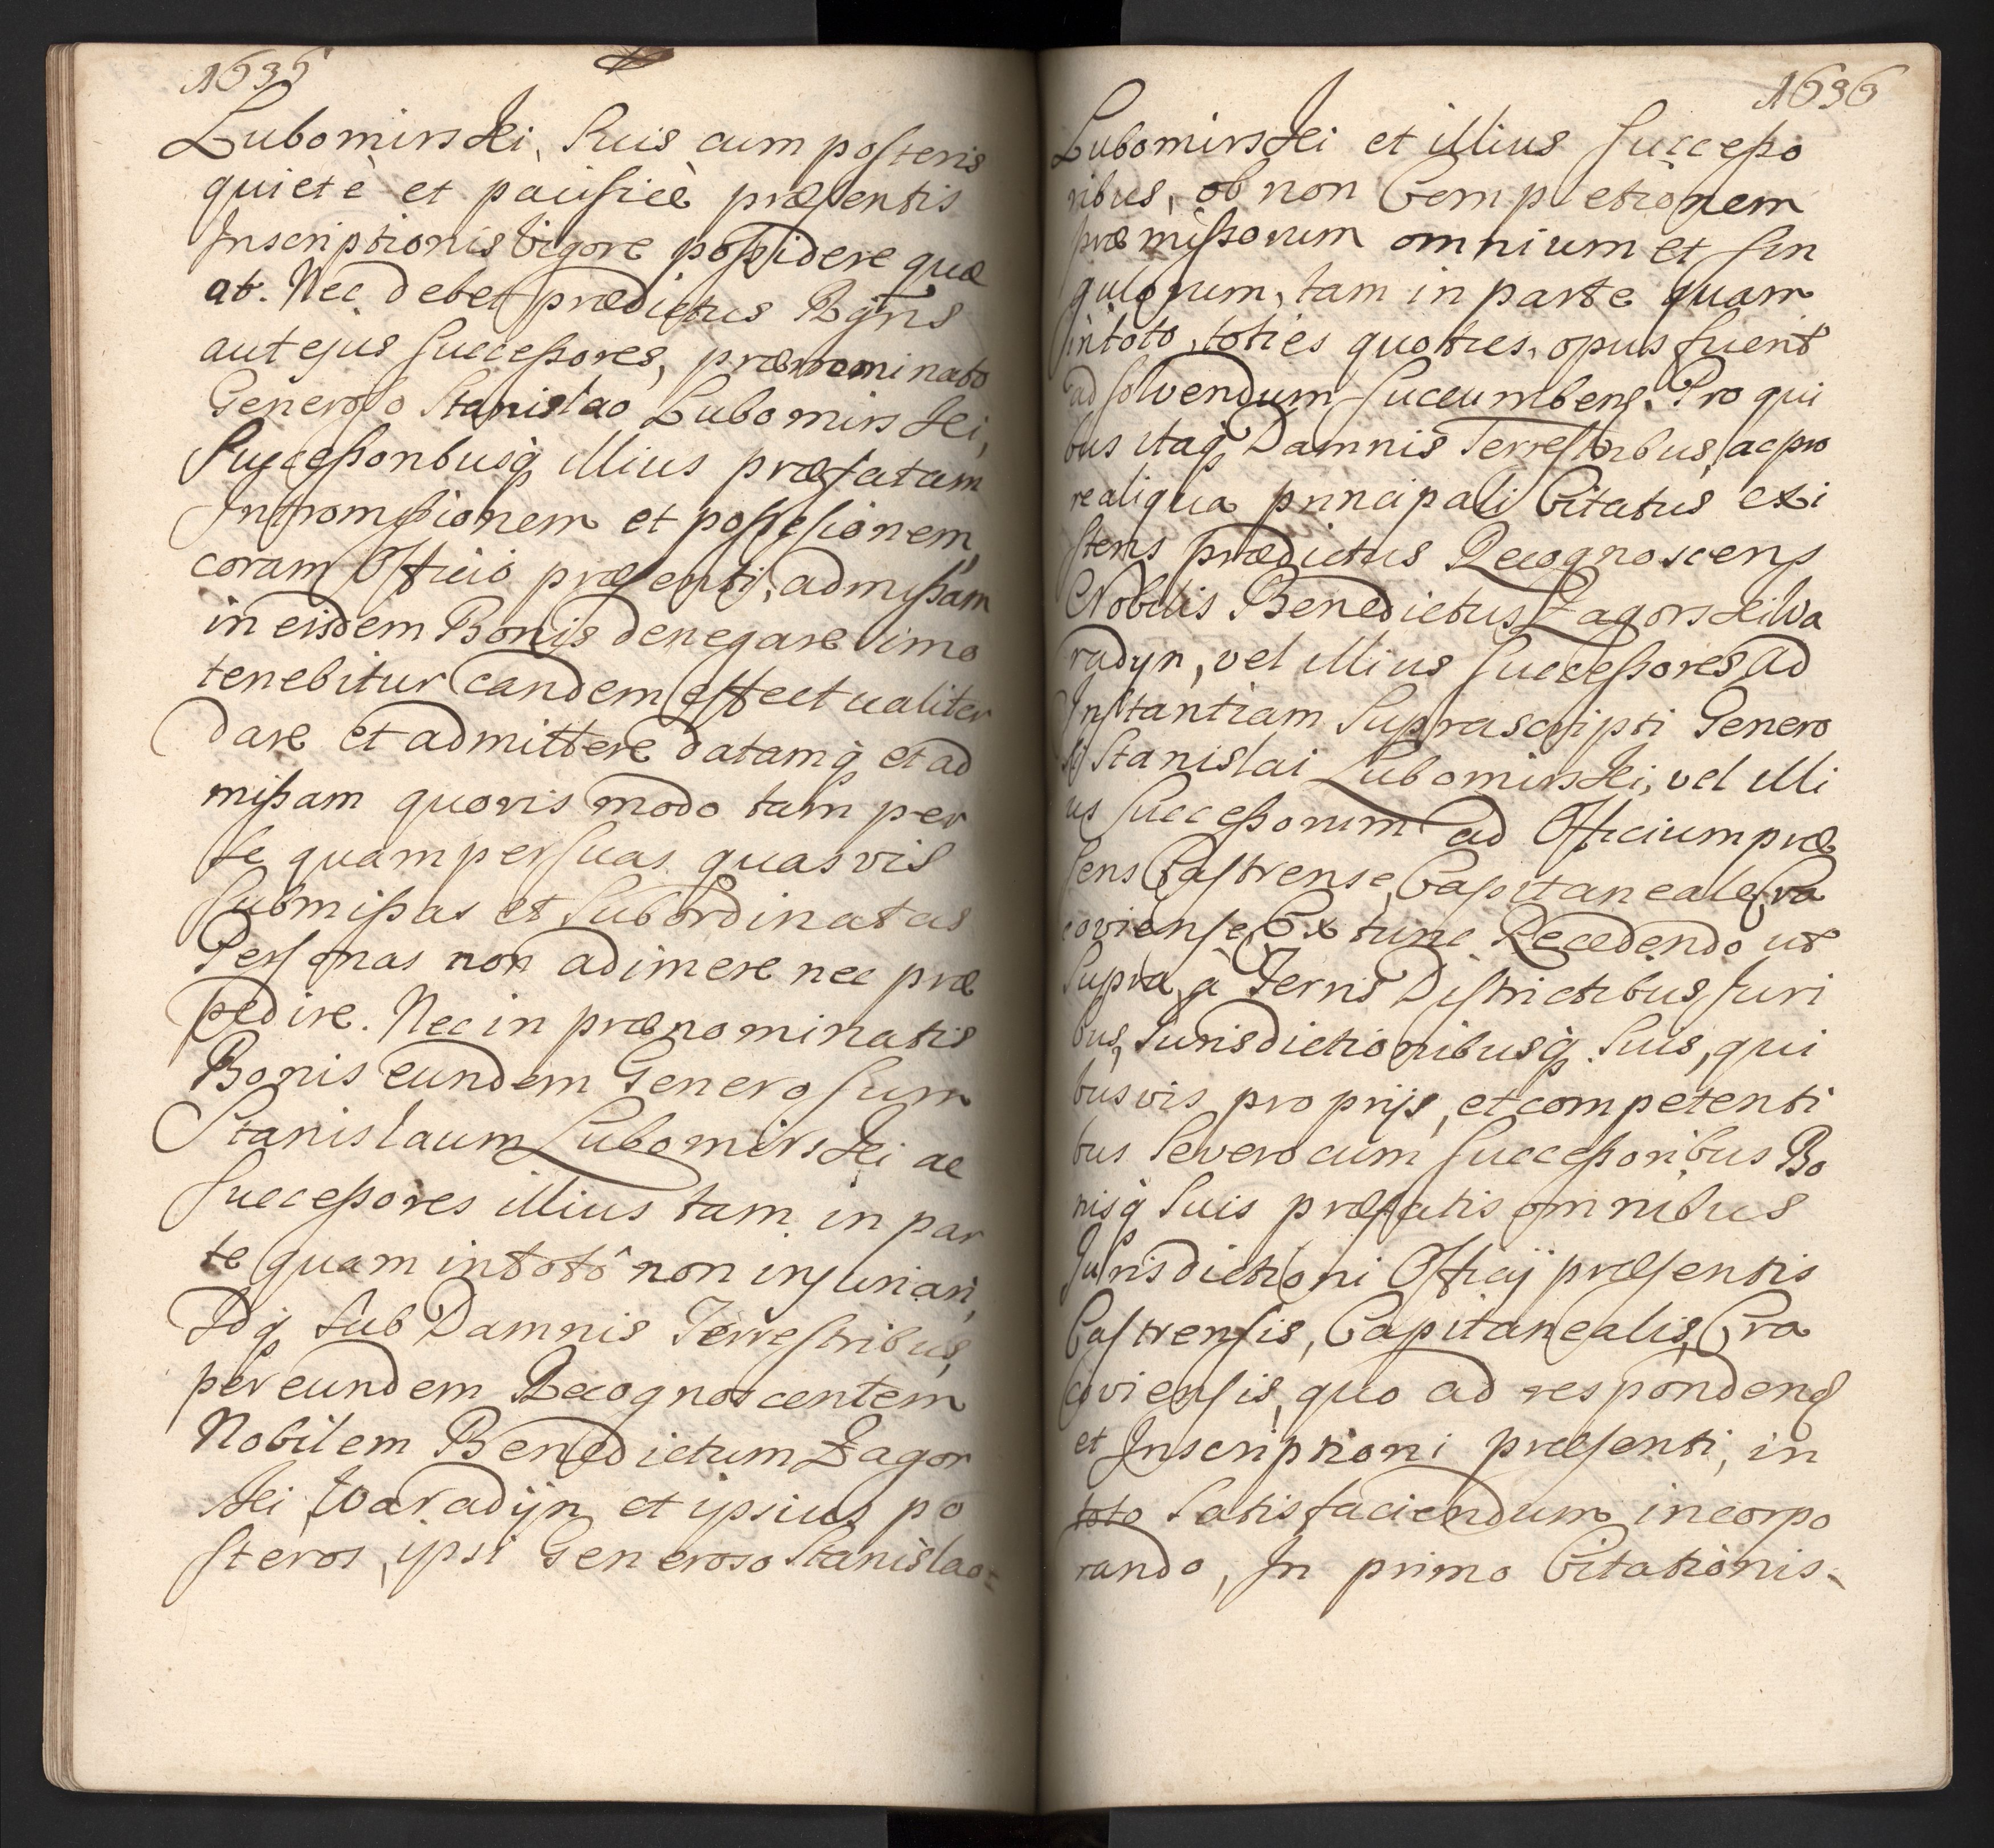 1635
Lubomirski, Suis cum posteris
quietè et pacificè præsentis
Inscriptionis Vigore possidere que
at. Nec debet prædictus Rgns
aut ejus Successores, prænominato
Generoso Stanislao Lubomirski,
Successoribusq illius præfatam
Intromissionem et possessionem,
coram Officio præsenti, admissam
in eisdem Bonis denegare imo
tenebitur eandem effectualiter
dare et admittere datamq et ad
missam quovis modo tam per
se quam per suas quasvis
Submissas et Subordinatas
Personas non adimere nec præ
pedire. Nec in prænominatis
Bonis eundem Generosum
Stanislaum Lubomirski ac
Successores illius tam in par
te quam in totô non injuriari,
Idq sub Damnis Terrestribus,
per eundem Recognoscentem
Nobilem Benedictum Zagor
ski Waradijn et ipsius po
steros, ipsi Generoso Stanislao
1636
Lubomirski et illius Successo
ribus, ob non Completionem
præmissorum omnium et sin
gulorum, tam in parte quam
in toto, toties quoties, opus fuerit
ad solvendum succumbens. Pro qui
bus itaq Damnis Terrestribus, ac pro
re aliqua principali Citatus exi
stens prædictus Recognoscens
Nobilis Benedictus Zagorski Wa
radyn, vel illius Successores ad
Instantiam Suprascripti Genero
si Stanislai Lubomirski, vel illi
us Successorum ad Officium præ
sens Castrense, Capitaneale Cra
coviense Ex tunc Recedendo ut
Supra à Terris Districtibus, Juri
bus, Jurisdictionibusq Suis, qui
busvis proprijs, et competenti
bus Se vero cum Successoribus Bo
nisq Suis præfatis omnibus
Jurisdictioni Officij præsentis
Castrensis, Capitanealis, Cra
coviensis, quo ad respondens
et Inscriptioni præsenti, in
toto Satisfaciendum incorpo
rando, In primo Citationis